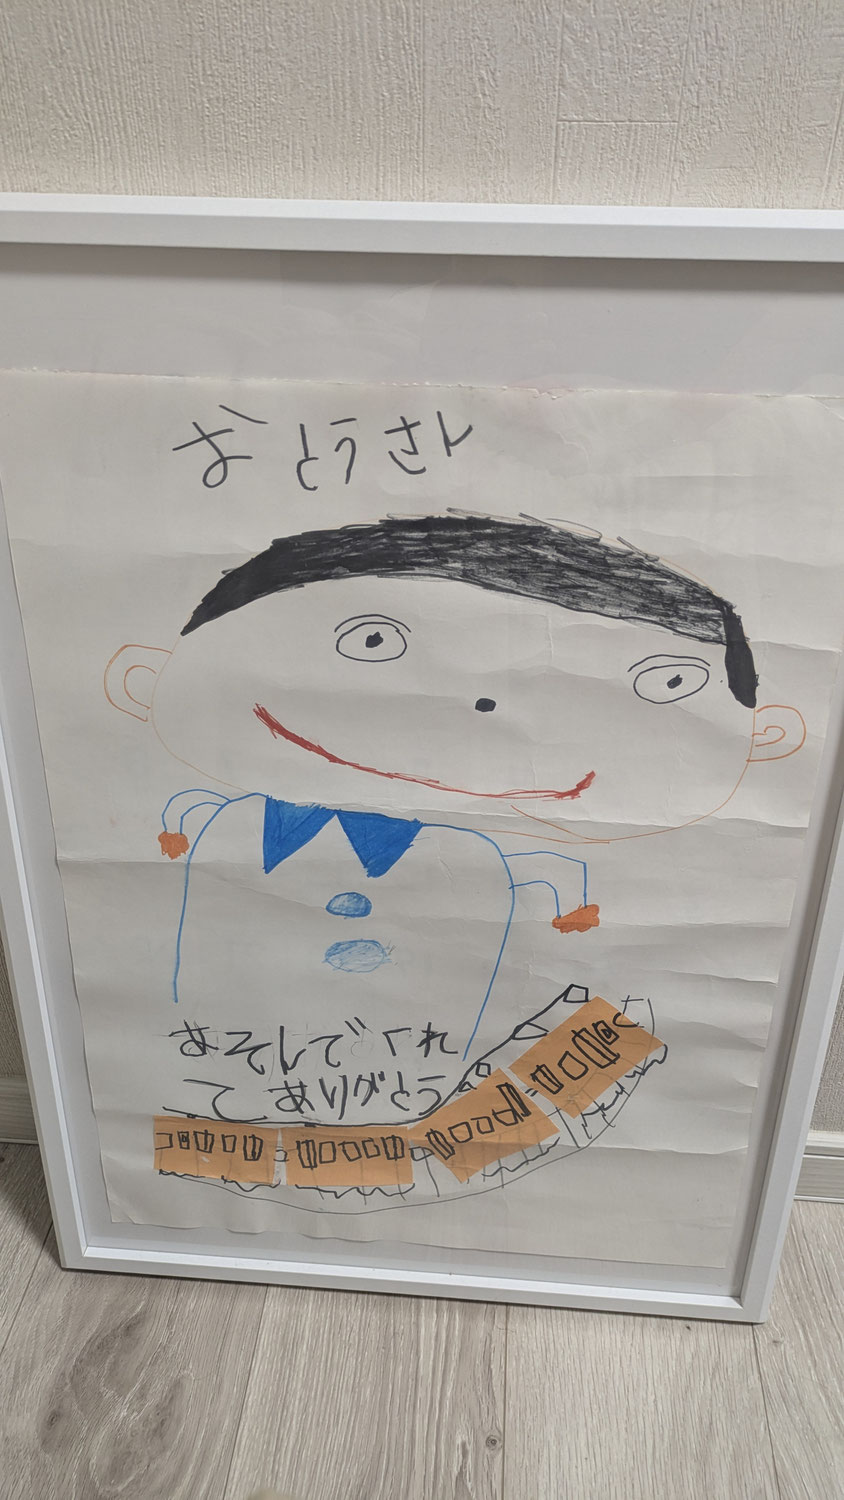 おとうさん
あそんでくれ
てありがとう